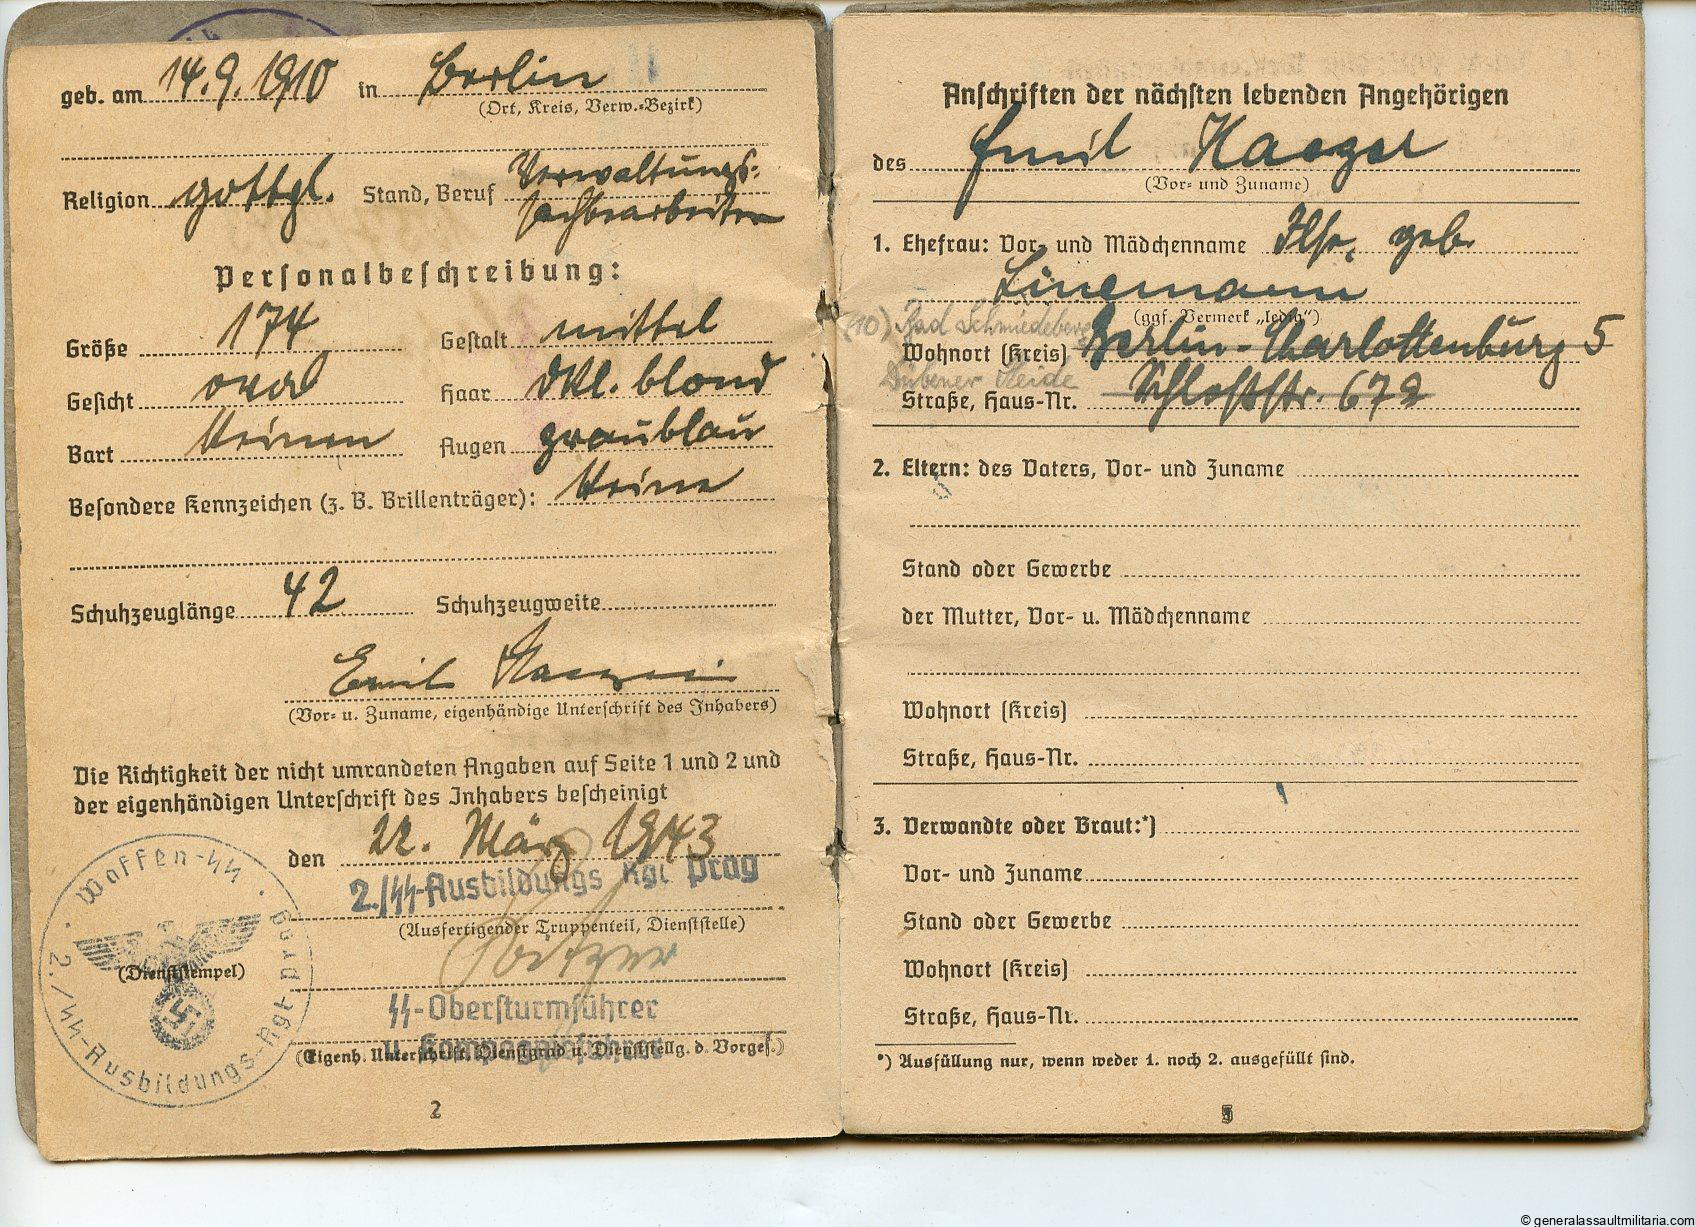 geb. am 14.9.1910 in Berlin
(Ort, Kreis, Verw.-Bezirk)
Religion gottgl. Stand, Beruf Verwaltungs-
sachbearbeiter
Personalbeschreibung:
Größe 174 Gestalt mittel
Gesicht oval Haar dkl. blond
Bart keinen Augen graublau
Besondere Kennzeichen (z. B. Brillenträger): keine
Schuhzeuglänge 42 Schuhzeugweite
Emil
(Vor- u. Zuname, eigenhändige Unterschrift des Inhabers)
Die Richtigkeit der nicht umrandeten Angaben auf Seite 1 und 2 und
der eigenhändigen Unterschrift des Inhabers bescheinigt
den 22. März 1943
2./SS-Ausbildungs Rgt Prag
(Ausfertigender Truppenteil, Dienststelle)
SS-Obersturmführer
u. Kompanieführer
(Eigenh. Unterschrift, Dienstgrad u. Dienststellg. d. Vorges.)
(Dienststempel)
Waffen-SS
2./SS-Ausbildungs-Rgt prag
2
Anschriften der nächsten lebenden Angehörigen
des Emil Kaeger
(Vor- und Zuname)
1. Ehefrau: Vor- und Mädchenname Ilse, geb.
Linemann
(ggf. Vermerk „ledig“)
(10) Bad Schmiedeberg
Wohnort (Kreis) Berlin-Charlottenburg 5
Dübener Heide
Straße, Haus-Nr. Schloßstr. 672
2. Eltern: des Vaters, Vor- und Zuname
Stand oder Gewerbe
der Mutter, Vor- u. Mädchenname
Wohnort (Kreis)
Straße, Haus-Nr.
3. Verwandte oder Braut:*)
Vor- und Zuname
Stand oder Gewerbe
Wohnort (Kreis)
Straße, Haus-Nr.
*) Ausfüllung nur, wenn weder 1. noch 2. ausgefüllt sind.
© generalassaultmilitaria.com